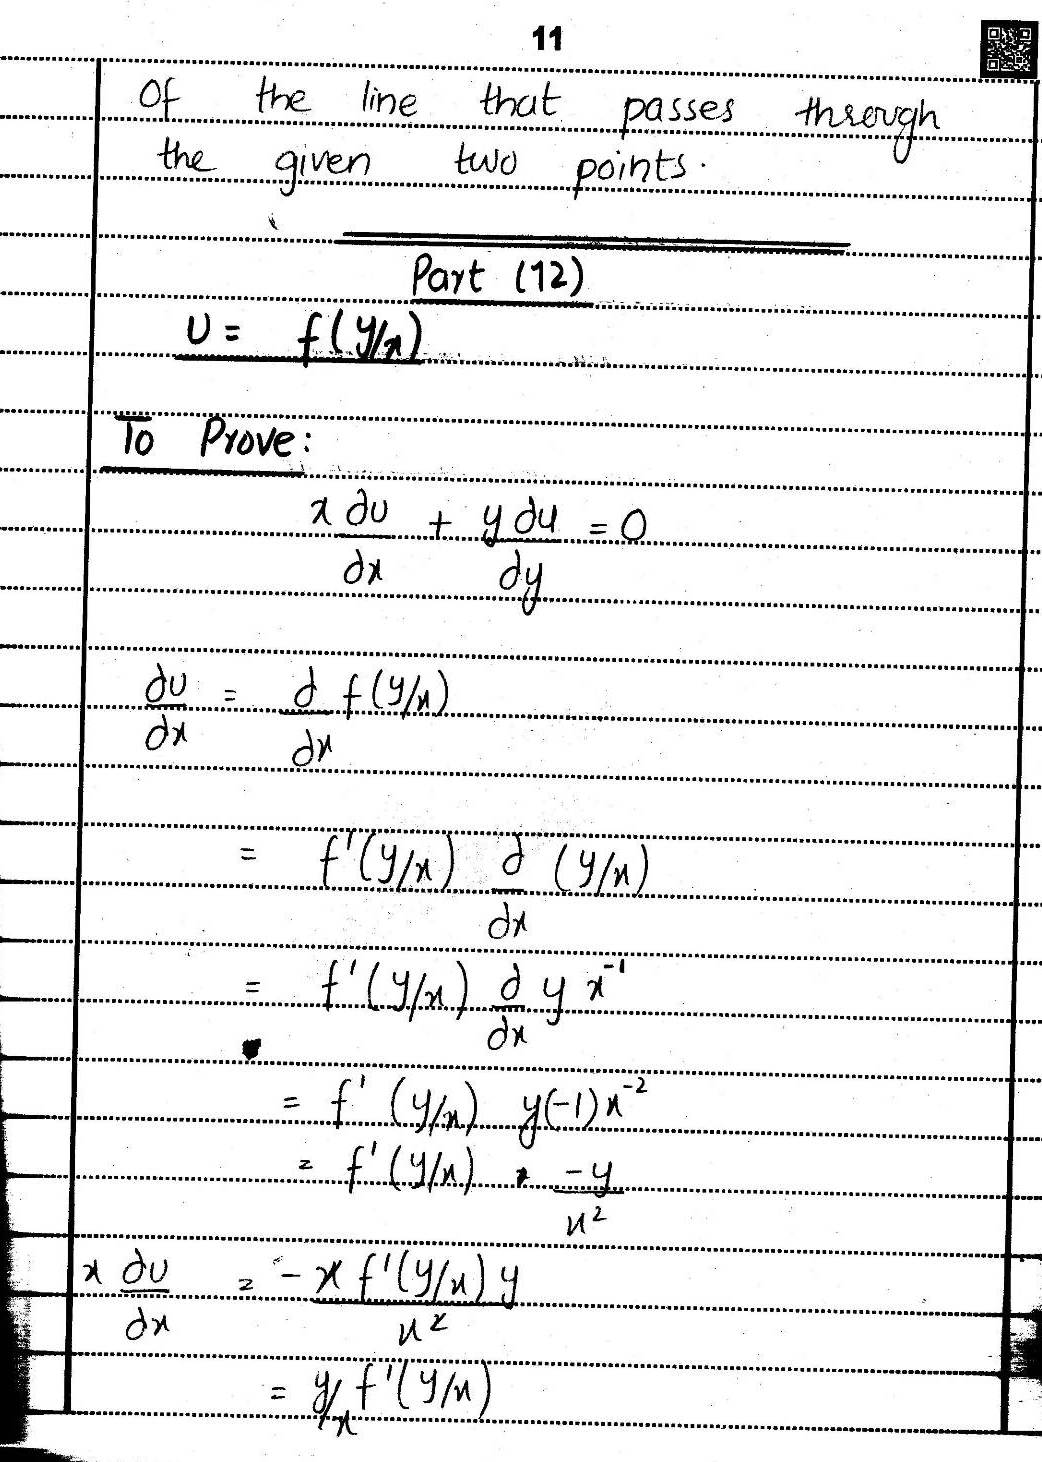 11
Of the line that passes through
the given two points.
Part (12)
U = f(y/x)
To Prove:
x ∂u/∂x + y ∂u/∂y = 0
∂u/∂x = ∂/∂x f(y/x)
= f'(y/x) ∂/∂x (y/x)
= f'(y/x) ∂/∂x y x⁻¹
= f'(y/x) y(-1)x⁻²
= f'(y/x) · -y/x²
x ∂u/∂x = -x f'(y/x) y/x²
= y/x f'(y/x)